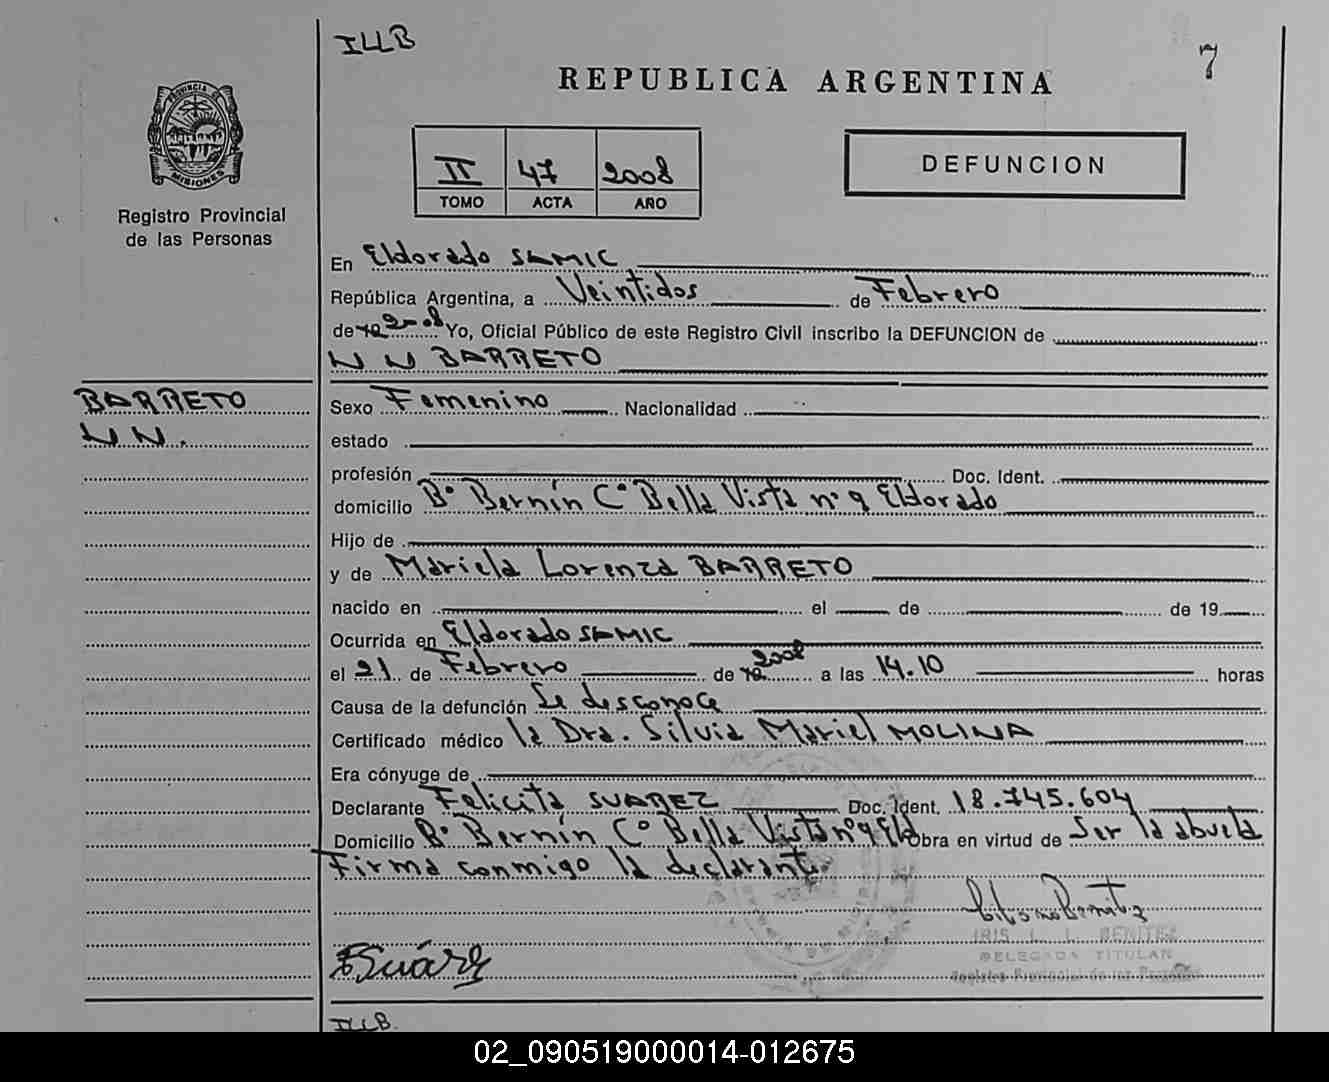 ILLB
7
REPUBLICA ARGENTINA
PROVINCIA DE
MISIONES
Registro Provincial
de las Personas
II 47 2008
TOMO ACTA AÑO
DEFUNCION
En Eldorado SAMIC
República Argentina, a Veintidos de Febrero
de 19 2008 Yo, Oficial Público de este Registro Civil inscribo la DEFUNCION de
N N BARRETO
BARRETO
N N.
Sexo Femenino Nacionalidad
estado
profesión Doc. Ident.
domicilio Bº Bernín Cº Bella Vista nº 9 Eldorado
Hijo de
y de Mariela Lorenza BARRETO
nacido en el de de 19
Ocurrida en Eldorado SAMIC
el 21 de Febrero de 19 2008 a las 14.10 horas
Causa de la defunción Se desconoce
Certificado médico la Dra. Silvia Mariel MOLINA
Era cónyuge de
Declarante Felicita SUAREZ Doc. Ident. 18.745.604
Domicilio Bº Bernín Cº Bella Vista nº 9 Eld Obra en virtud de Ser la abuela
Firma conmigo la declarante
IRIS L. L. BENITEZ
DELEGADA TITULAR
Registro Provincial de las Personas
FSuárez
ILLB.
02_090519000014-012675